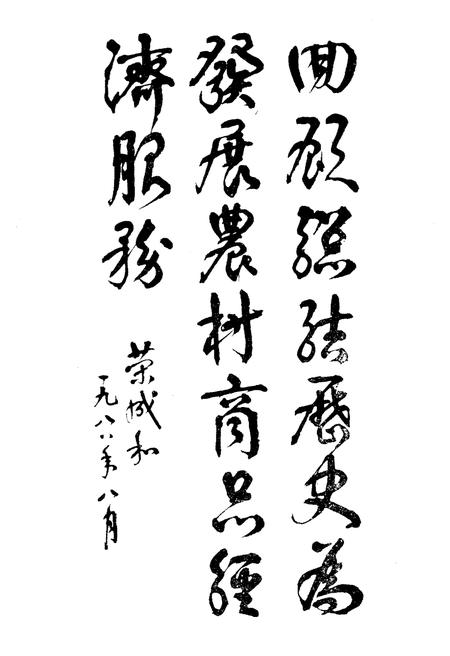 回顾總結歷史為
發展農村商品經
濟服務
荣成和
一九八八年八月